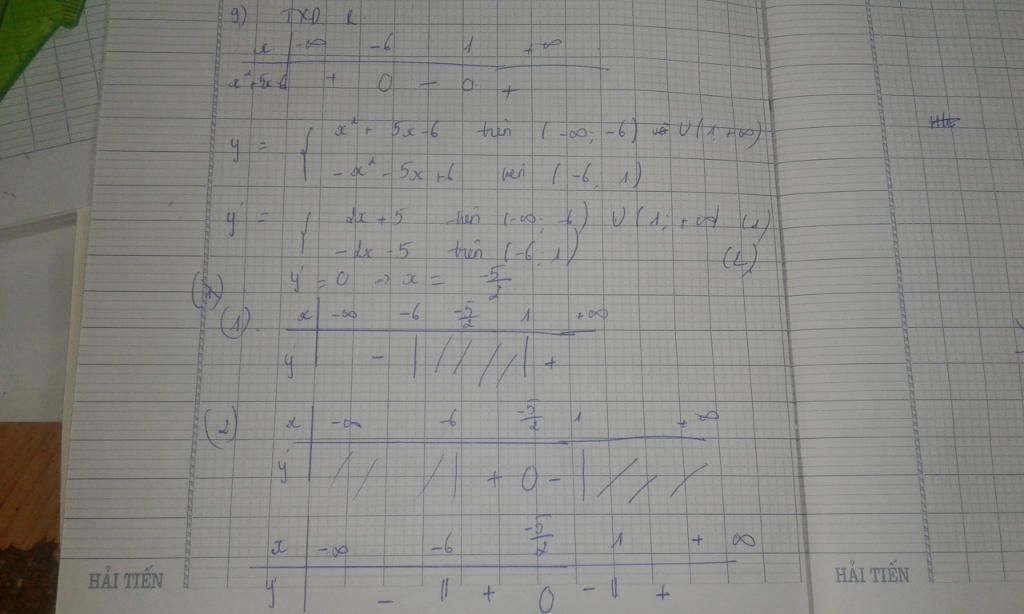 g) TXD R
x -∞ -6 1 +∞
x²+5x-6 + 0 - 0 +
y = { x² + 5x-6 trên (-∞; -6) U (1; +∞)
-x² - 5x + 6 trên (-6; 1)
y' = { 2x + 5 trên (-∞; -6) U (1; +∞ (1)
-2x - 5 trên (-6; 1) (2)
y' = 0 → x = -5/2
(1) x -∞ -6 -5/2 1 +∞
y' - | //// | +
(2) x -∞ -6 -5/2 1 +∞
y' // / || + 0 - | ///
x -∞ -6 -5/2 1 +∞
y' - || + 0 - || +
HẢI TIẾN
HẢI TIẾN